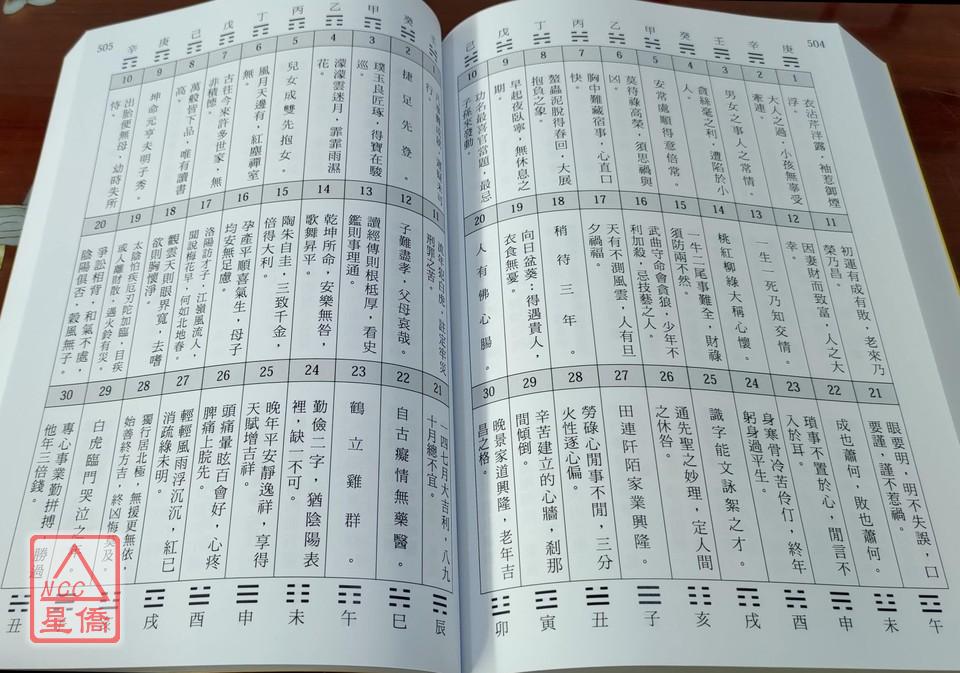 504
庚
辛
壬
癸
甲
乙
丙
丁
戊
己
1
衣沾芹泮露，袖惹御煙
浮。
2
大人之過，小孩無辜受
牽連。
3
男女之事人之常情。
4
貪絲毫之利，遭陷於小
人。
5
安常處順得意倍常。
6
莫待祿高榮，須思禍與
凶。
7
胸中難藏宿事，心直口
快。
8
螯蟲泥脫得春回，大展
抱負之象。
9
早起夜臥寧，無休息之
期。
10
功名最喜官當題，最忌
子孫來發動。
11
初運有成有敗，老來乃
榮乃昌。
12
因妻財而致富，人之大
幸。
13
一生一死乃知交情。
14
桃紅柳綠大稱心懷。
15
一生二尾事難全，財祿
須防兩不然。
16
武曲守命會貪狼，少年不
利加殺，忌技藝之人。
17
天有不測風雲，人有旦
夕禍福。
18
稍待三年。
19
向日盆葵：得遇貴人，
衣食無憂。
20
人有佛心腸。
21
眼要明，明不失誤，口
要謹，謹不惹禍。
22
成也蕭何，敗也蕭何。
23
瑣事不置於心，閒言不
入於耳。
24
身寒骨冷苦伶仃，終年
躬身過平生。
25
識字能文詠絮之才。
26
通先聖之妙理，定人間
之休咎。
27
田連阡陌家業興隆。
28
勞碌心閒事不閒，三分
火性逐心偏。
29
辛苦建立的心牆，剎那
間傾倒。
30
晚景家道興隆，老年吉
昌之格。
午
未
申
酉
戌
亥
子
丑
寅
卯
505
癸
甲
乙
丙
丁
戊
己
庚
辛
2
捷足先登。
3
璞玉良匠琢，得寶在駿
巡。
4
濛濛雲迷月，霏霏雨濕
花。
5
兒女成雙先抱女。
6
風月天邊有，紅塵禪室
無。
7
古往今來許多世家，無
非積德。
8
萬般皆下品，唯有讀書
高。
9
坤命元亨夫明子秀。
10
出胎便無母，幼時失所
恃。
11
刑罪之苦。
12
子難盡孝，父母哀哉。
13
讀經傳則根柢厚，看史
鑑則事理通。
14
乾坤所命，安樂無咎，
歌舞昇平。
15
陶朱自圭，三致千金，
倍得大利。
16
孕產平順喜氣生，母子
均安無足慮。
17
洛陽訪才子，江嶺風流人
聞說梅花早，何如北地春。
18
觀雲天則眼界寬，去嗜
欲則胸懷淨。
19
太陰怕疾厄刃陀加臨，目疾
或人離財散，遇火鈴有災。
20
爭訟相背，和氣不處，
陰陽俱否，穀風無子。
21
一四七月大吉利，八九
十月總不宜。
22
自古癡情無藥醫。
23
鶴立雞群。
24
勤儉二字，猶陰陽表
裡，缺一不可。
25
晚年平安靜逸祥，享得
天賦增吉祥。
26
頭痛暈眩百會好，心疼
脾痛上脘先。
27
輕輕風雨浮沉沉，紅已
消疏綠未明。
28
獨行居北極，無援更無依，
始善終方吉，終凶悔莫及。
29
白虎臨門哭泣之年。
30
專心事業勤拼搏，勝過
他年三倍錢。
辰
巳
午
未
申
酉
戌
丑
NCC
星僑